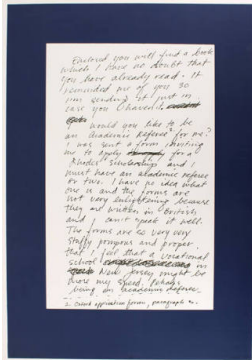 Enclosed you will find a book
which I have no doubt that
you have already read. It
reminded me of you so
I'm sending it just in
case you haven't.
would you like to be
an academic referee for me?
I was sent a form inviting
me to apply for a
Rhodes Scholarship and I
must have an academic referee
or two. I have no idea what
one is and the forms are
not very enlightening because
they are written in
and I can't speak it well.
The forms are so very very
stuffy pompous and proper
that I feel that a vocational
school in
New Jersey might be
more my speed. Perhaps
being an academic referee